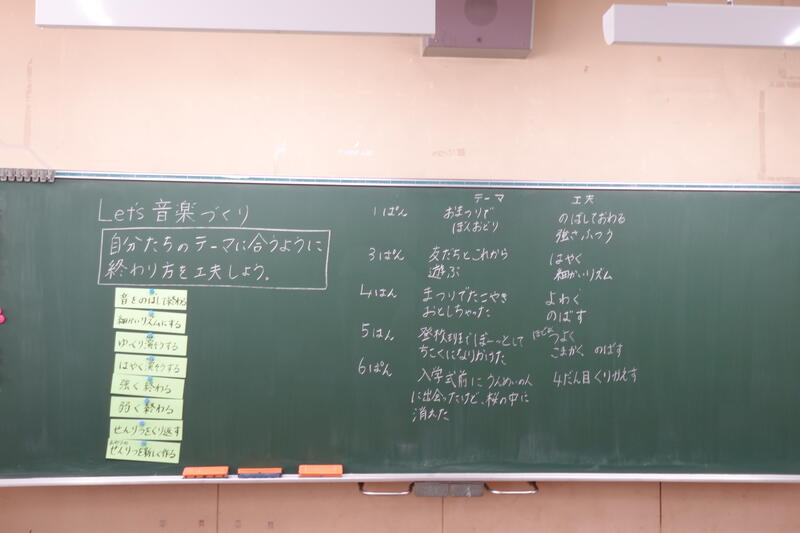 Let's 音楽づくり
自分たちのテーマに合うように
終わり方を工夫しよう。
音をのばして終わる
細かいリズムにする
ゆっくり演そうする
はやく演そうする
強く終わる
弱く終わる
せんりつをくり返す
せんりつを新しく作る
テーマ 工夫
1ぱん おまつりで のばしておわる
ぼんおどり 強さふつう
3ぱん 友だちとこれから はやく
遊ぶ 細かいリズム
4ぱん まつりでたこやき よわく
おとしちゃった のばす
5ぱん 登校時までぼーっとして つよく
ちこくになりかけた こまかく のばす
6ぱん 入学式前にうんめいの人 4だん目くりかえす
に出会ったけど、桜の中に
消えた